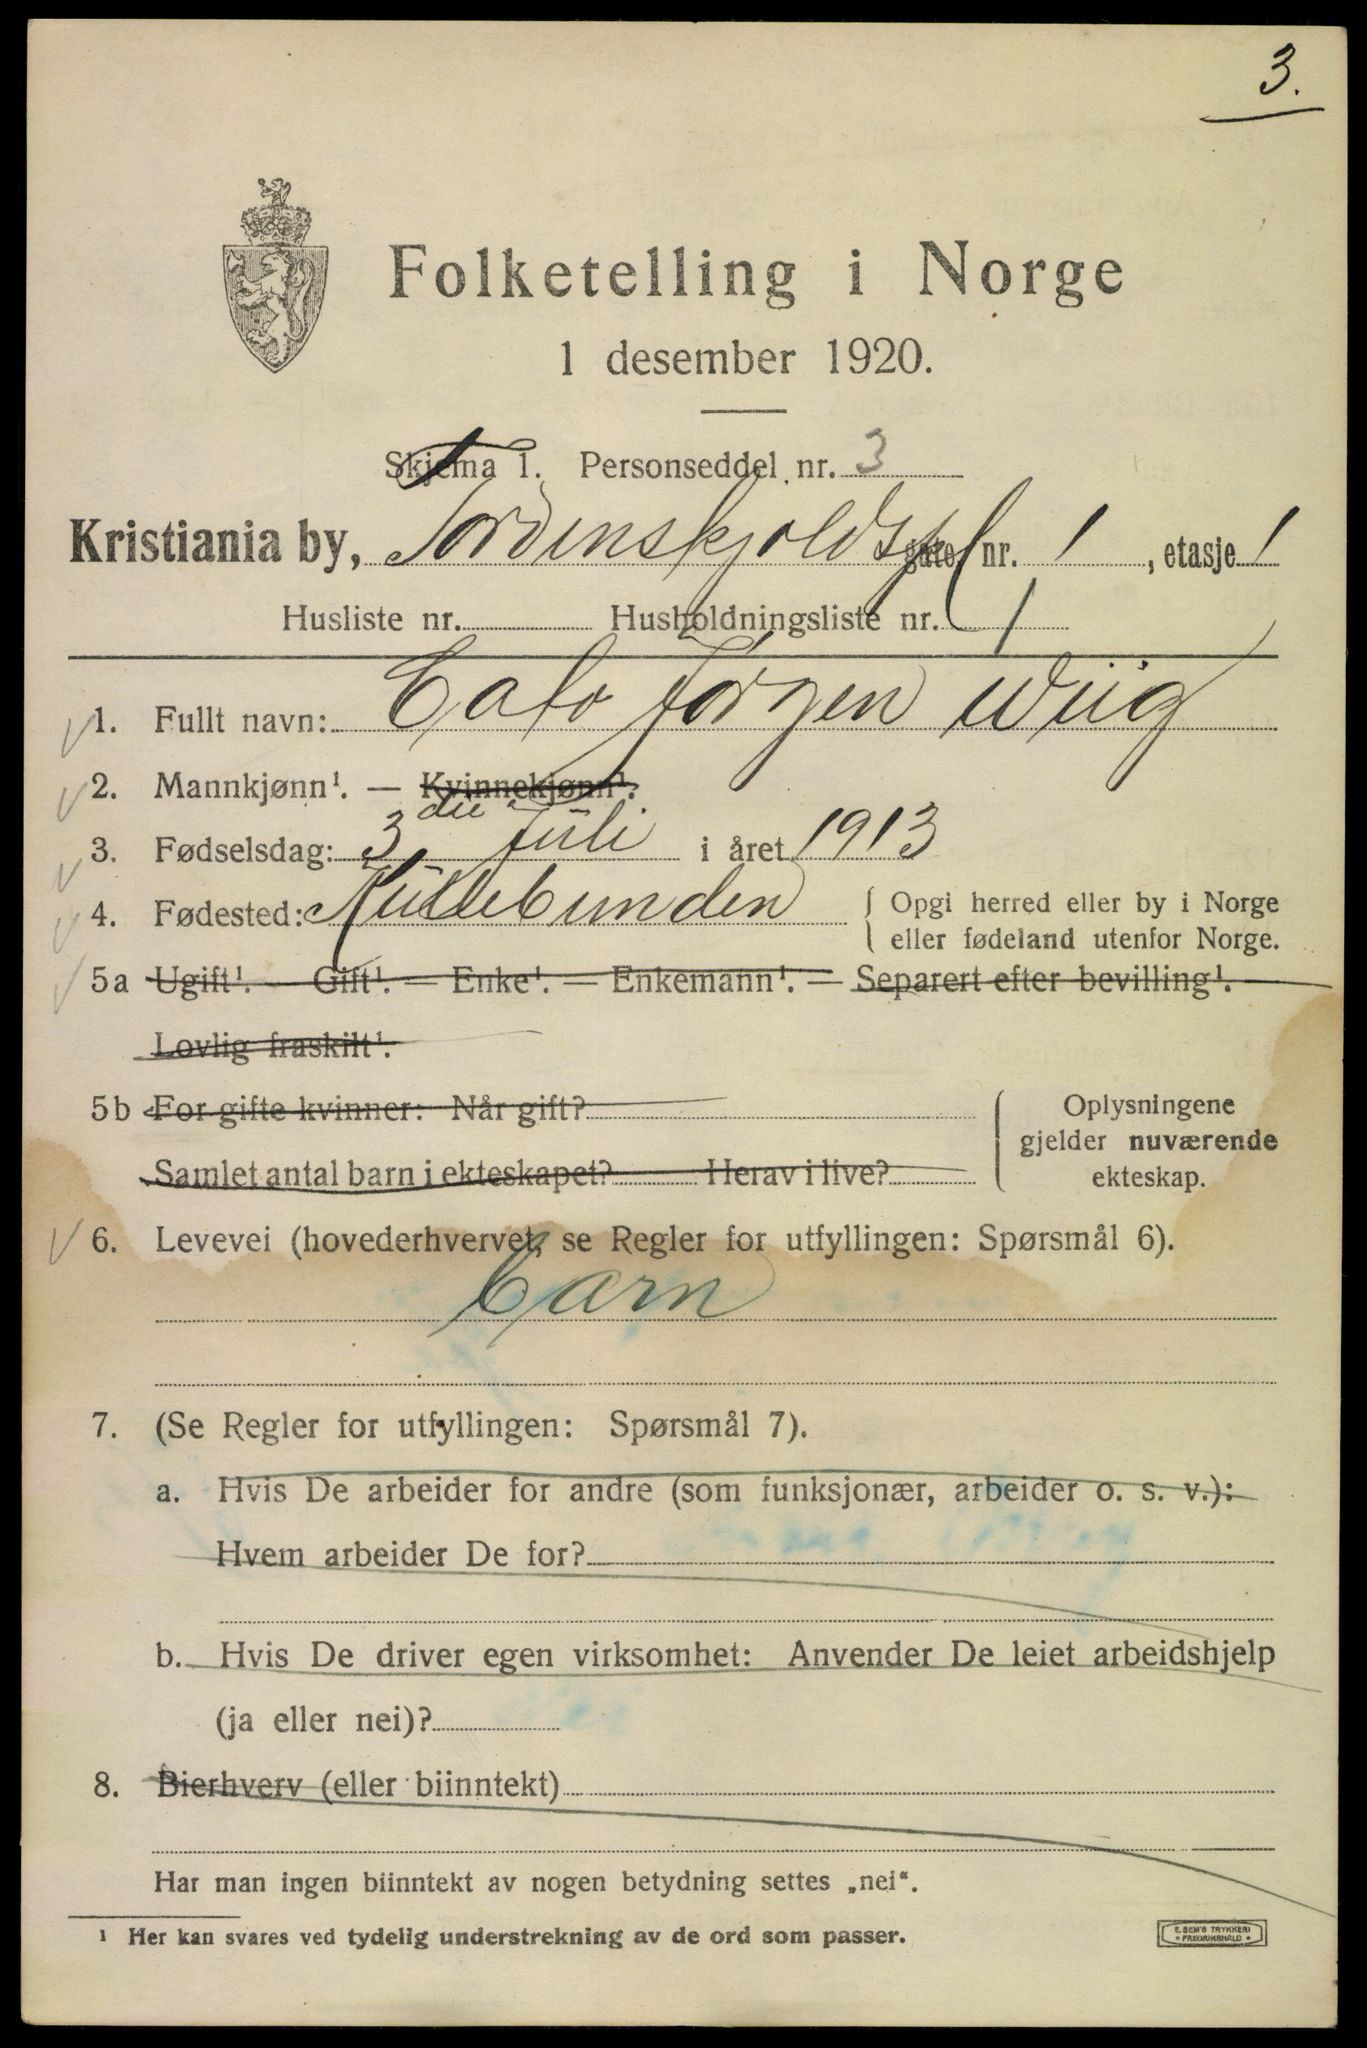 3.
Folketelling i Norge
1 desember 1920.
Skjema 1. Personseddel nr. 3
Kristiania by, Tordenskjoldspl gate nr. 1, etasje 1
Husliste nr. Husholdningsliste nr. 1
1. Fullt navn: Cato Jørgen Wiig
2. Mannkjønn¹. — Kvinnekjønn¹.
3. Fødselsdag: 3die Juli i året 1913
4. Fødested: { Opgi herred eller by i Norge
{ eller fødeland utenfor Norge.
5a Ugift¹. — Gift¹. — Enke¹. — Enkemann¹. — Separert efter bevilling¹.
Lovlig fraskilt¹.
5b For gifte kvinner: Når gift? Oplysningene
gjelder nuværende
Samlet antal barn i ekteskapet? Herav i live? ekteskap.
6. Levevei (hovederhvervet, se Regler for utfyllingen: Spørsmål 6).
barn
7. (Se Regler for utfyllingen: Spørsmål 7).
a. Hvis De arbeider for andre (som funksjonær, arbeider o. s. v.):
Hvem arbeider De for?
b. Hvis De driver egen virksomhet: Anvender De leiet arbeidshjelp
(ja eller nei)?
8. Bierhverv (eller biinntekt)
Har man ingen biinntekt av nogen betydning settes „nei“.
¹ Her kan svares ved tydelig understrekning av de ord som passer.
E. SEM'S TRYKKERI
* FREDRIKSHALD *